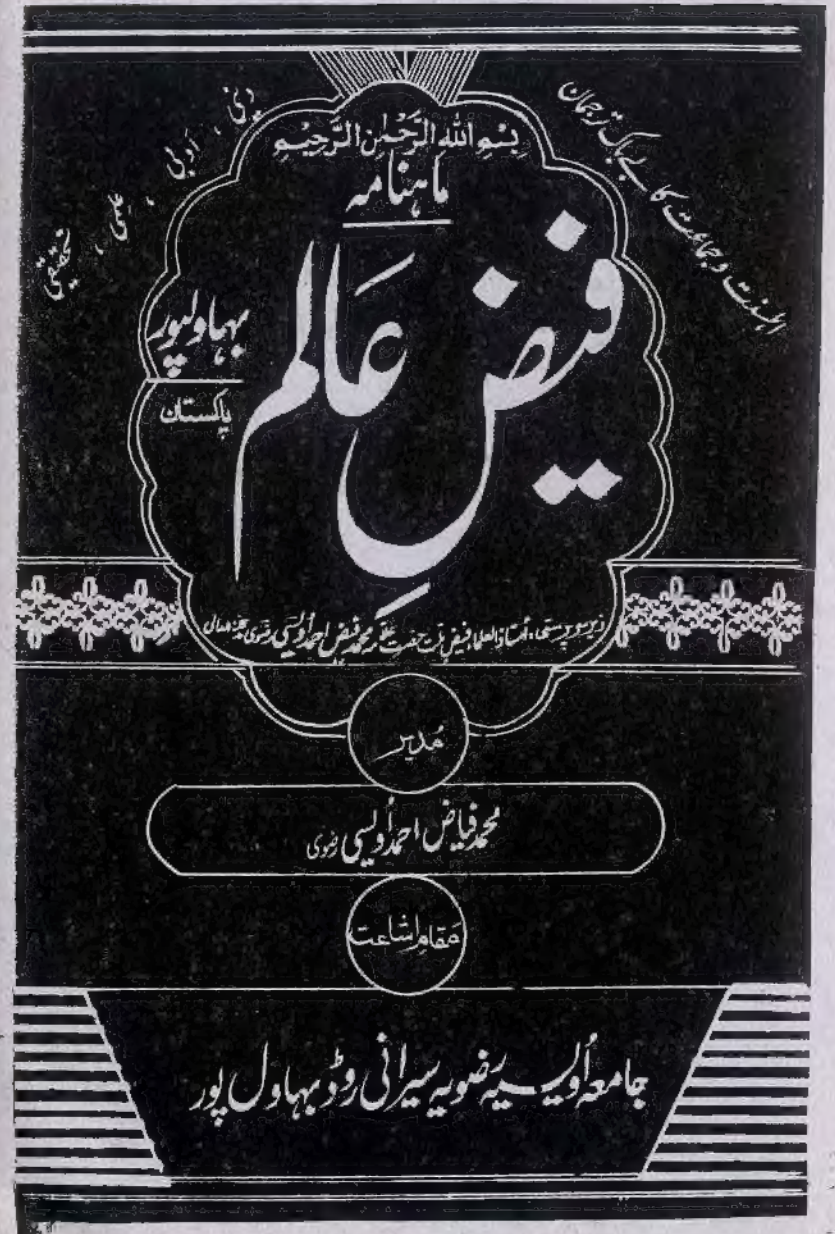 اہلسنت و جماعت کا بے باک ترجمان
دینی ، ادبی ، علمی ، تحقیقی
بِسْمِ اللهِ الرَّحْمٰنِ الرَّحِیْمِ
ماہنامہ
فیضِ عالم
بہاولپور
پاکستان
زیر سرپرستی : اُستاذ العلما فیض ملت حضرت علامہ محمد فیض احمد اُویسی رضوی مدظلہ العالی
مُدیر
محمد فیاض احمد اُویسی رضوی
مقامِ اشاعت
جامعہ اُویسیہ رضویہ سیرانی روڈ بہاول پور